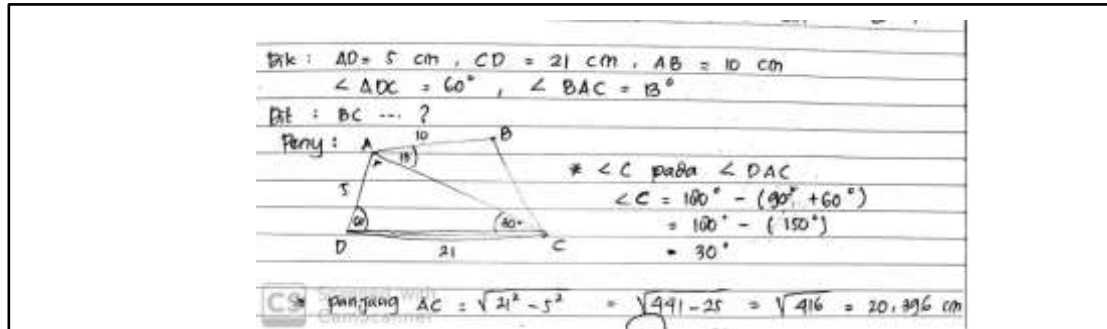 Dik : AD = 5 cm , CD = 21 cm , AB = 10 cm
∠ ADC = 60° , ∠ BAC = 13°
Dit : BC .... ?
Peny :
A
10
B
13
5
60
30°
D
21
C
* ∠ C pada ∠ DAC
∠C = 180° - (90° + 60°)
= 180° - (150°)
= 30°
CS
* panjang AC = √21² - 5² = √441 - 25 = √416 = 20,396 cm